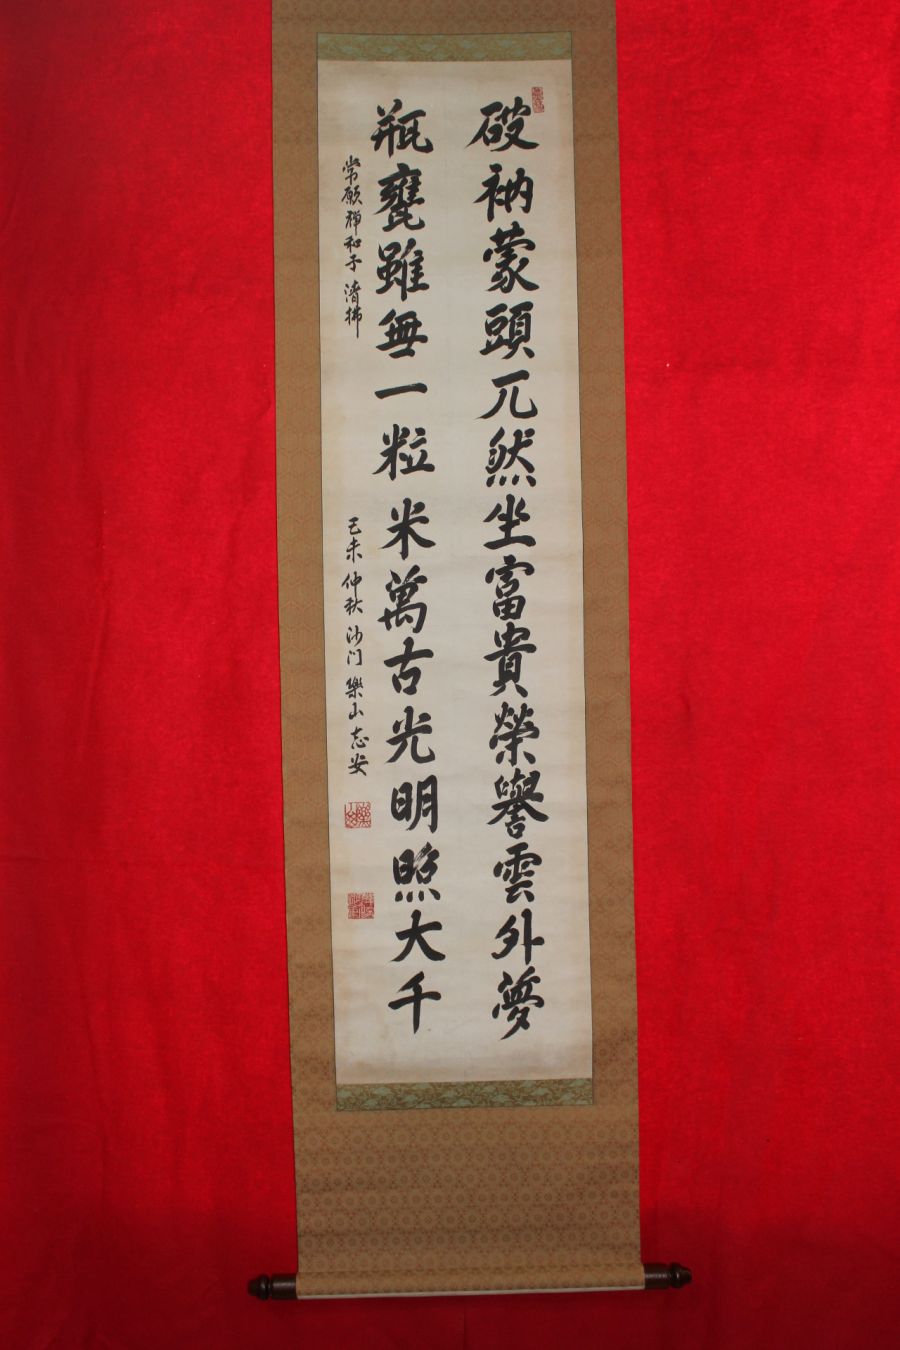 破衲蒙頭兀然坐富貴榮譽雲外夢
瓶甕雖無一粒米萬古光明照大千
常願禅和子清拂
己未仲秋沙门樂山志安